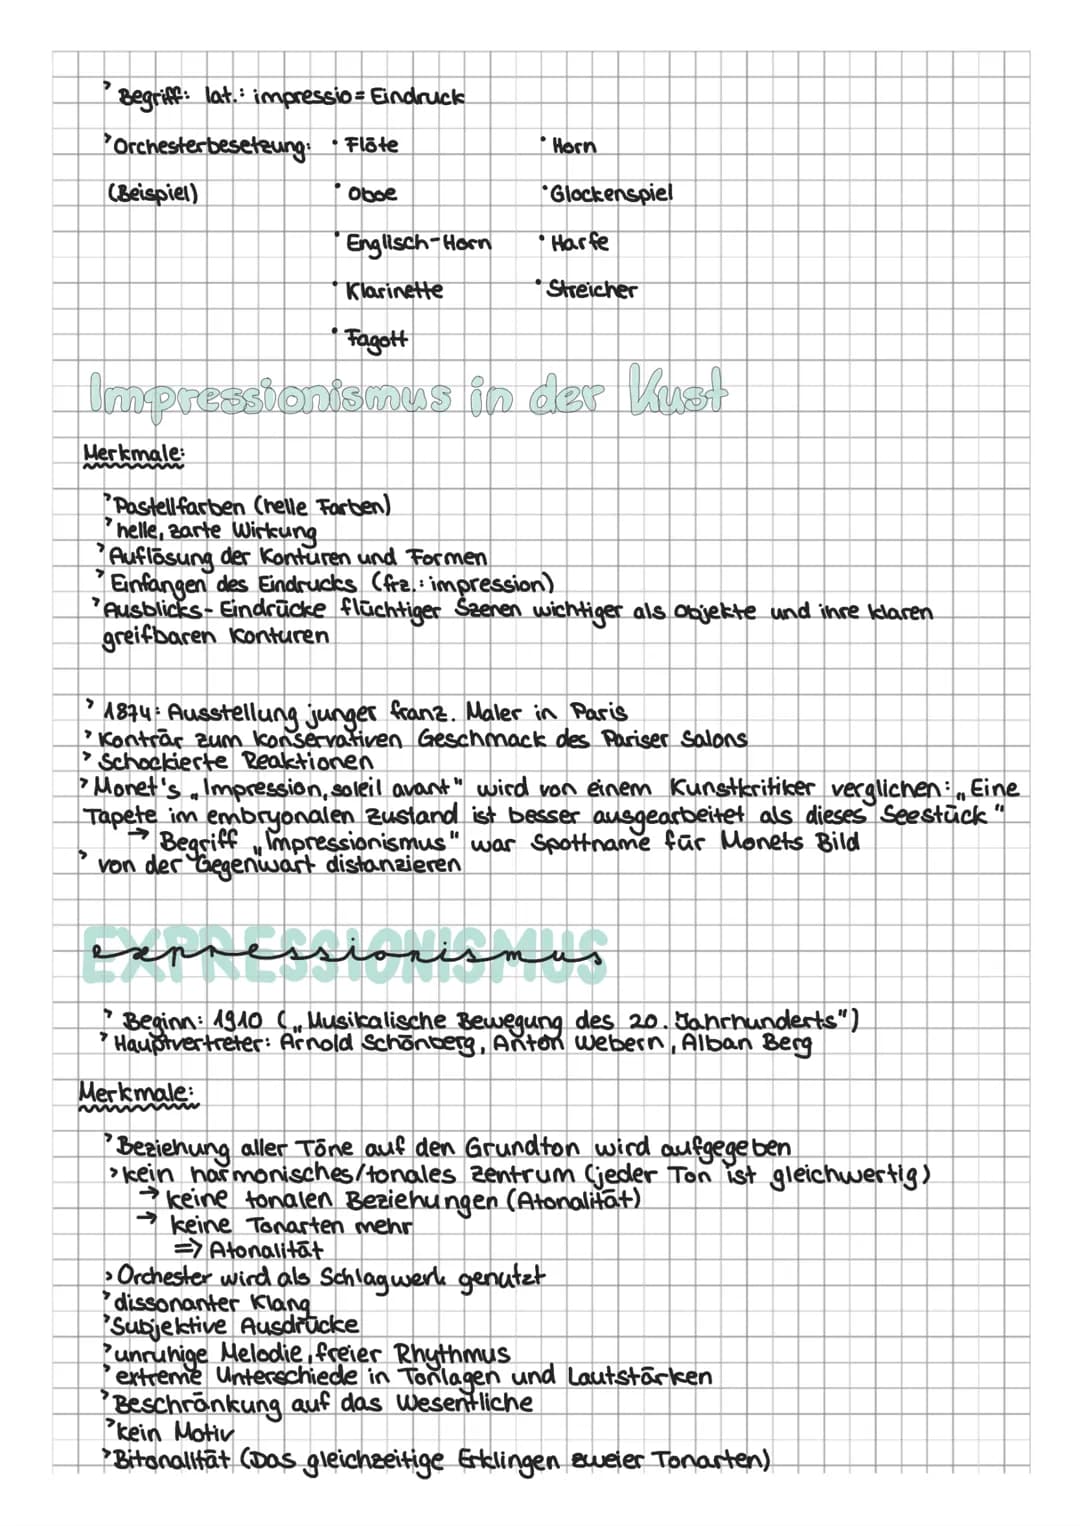 > Begriff: lat.: impressio = Eindruck
> Orchesterbesetzung: • Flöte • Horn
(Beispiel) • Oboe • Glockenspiel
• Englisch-Horn • Harfe
• Klarinette • Streicher
• Fagott
Impressionismus in der Kust
Merkmale:
> Pastellfarben (helle Farben)
> helle, zarte Wirkung
> Auflösung der Konturen und Formen
> Einfangen des Eindrucks (frz.: impression)
> Ausblicks-Eindrücke flüchtiger Szenen wichtiger als Objekte und ihre klaren
greifbaren Konturen
> 1874: Ausstellung junger franz. Maler in Paris
> Konträr zum konservativen Geschmack des Pariser Salons
> Schockierte Reaktionen
> Monet's „Impression, soleil avant" wird von einem Kunstkritiker verglichen: „Eine
Tapete im embryonalen Zustand ist besser ausgearbeitet als dieses Seestück"
→ Begriff „Impressionismus" war Spottname für Monets Bild
> von der Gegenwart distanzieren
EXPRESSIONISMUS
expressionismus
> Beginn: 1910 („Musikalische Bewegung des 20. Jahrhunderts")
> Hauptvertreter: Arnold Schönberg, Anton Webern, Alban Berg
Merkmale:
> Beziehung aller Töne auf den Grundton wird aufgegeben
> kein harmonisches/tonales Zentrum (jeder Ton ist gleichwertig)
→ keine tonalen Beziehungen (Atonalität)
→ keine Tonarten mehr
=> Atonalität
> Orchester wird als Schlagwerk genutzt
> dissonanter Klang
> Subjektive Ausdrücke
> unruhige Melodie, freier Rhythmus
> extreme Unterschiede in Tonlagen und Lautstärken
> Beschränkung auf das Wesentliche
> kein Motiv
> Bitonalität (Das gleichzeitige Erklingen zweier Tonarten)